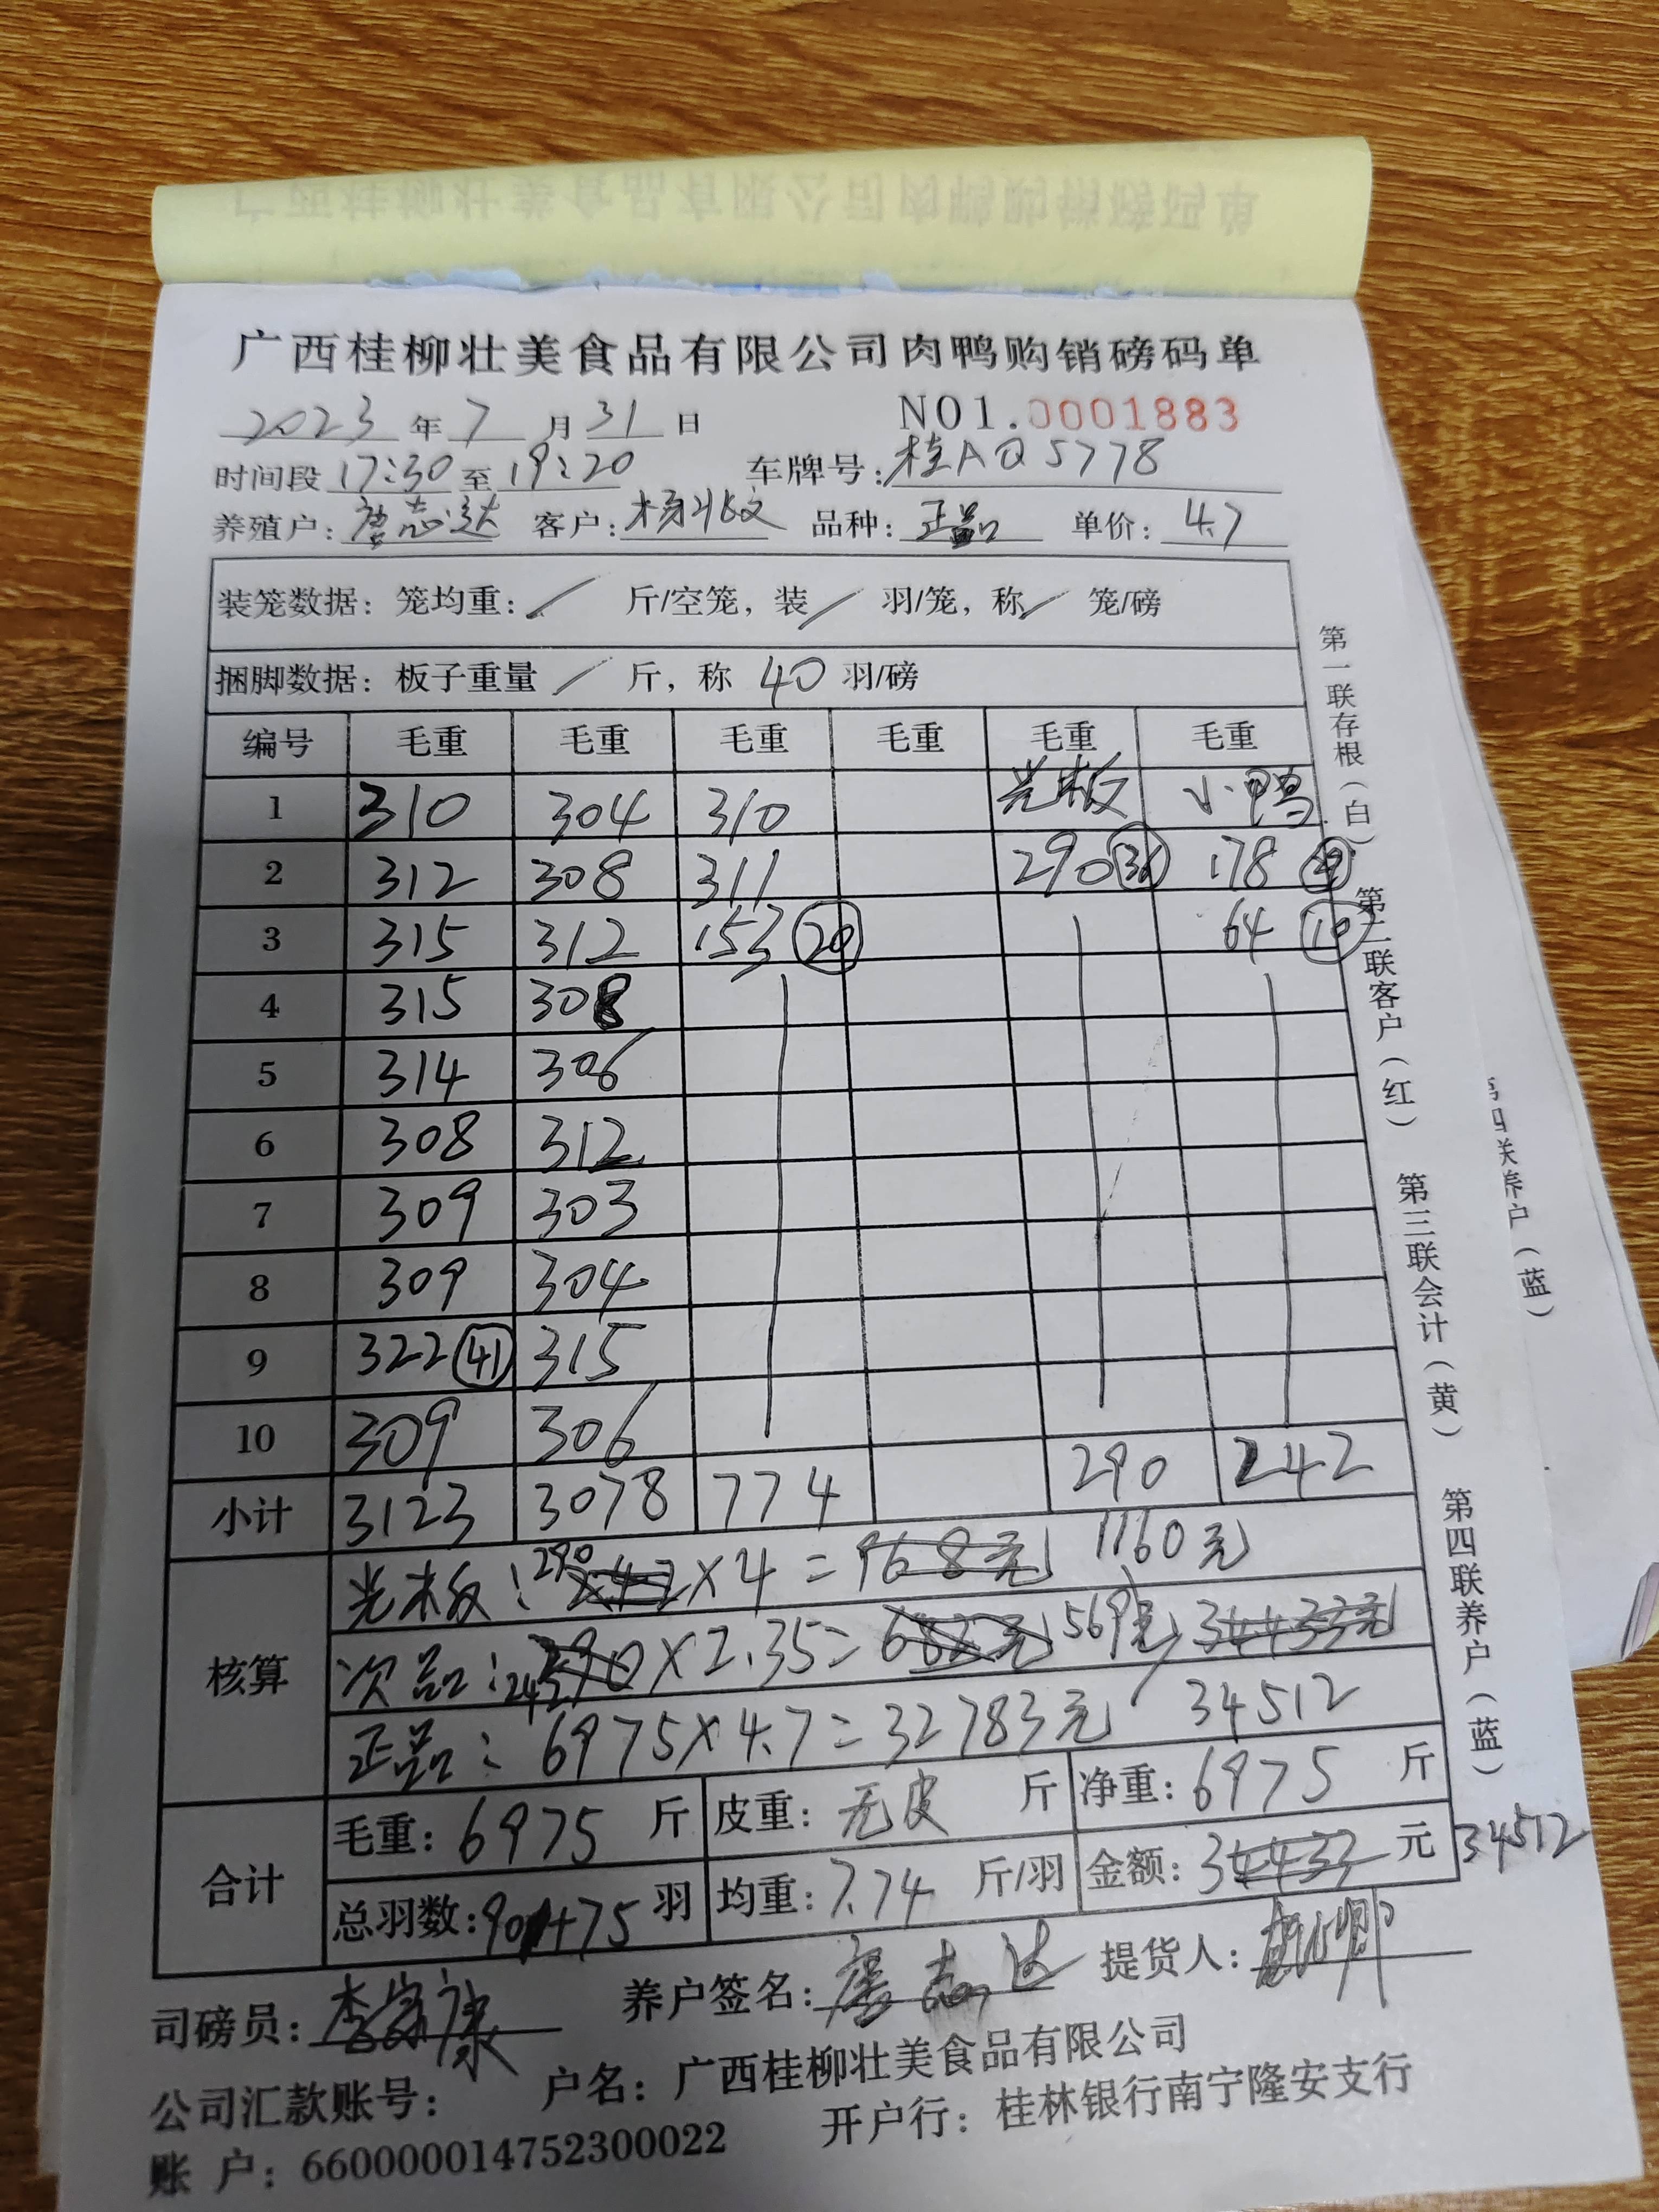 广西桂柳壮美食品有限公司肉鸭购销磅码单
2023 年 7 月 31 日 NO1.0001883
时间段 17:30 至 19:20 车牌号: 桂AQ5778
养殖户: 唐志达 客户: 品种: 正品 单价: 4.7
装笼数据: 笼均重: / 斤/空笼, 装 / 羽/笼, 称 / 笼/磅
捆脚数据: 板子重量 / 斤, 称 40 羽/磅
编号 毛重 毛重 毛重 毛重 毛重 毛重
1 310 304 310 光板 小鸭
2 312 308 311 290 178
3 315 312 153 20 64 10
4 315 308
5 314 306
6 308 312
7 309 303
8 309 304
9 322 41 315
10 309 306
小计 3123 3078 774 290 242
核算
光板: 290 242 × 4 = 968元 1160元
次品: 242 290 × 2.35 = 682元 569元 34433元
正品: 6975 × 4.7 = 32783元 34512
合计
毛重: 6975 斤 皮重: 无皮 斤 净重: 6975 斤
总羽数: 901+75 羽 均重: 7.74 斤/羽 金额: 34433 元 34512
司磅员: 养户签名: 唐志达 提货人:
公司汇款账号: 户名: 广西桂柳壮美食品有限公司
账 户: 660000014752300022 开户行: 桂林银行南宁隆安支行
第一联存根(白) 第二联客户(红) 第三联会计(黄) 第四联养户(蓝)
第四联养户(蓝)